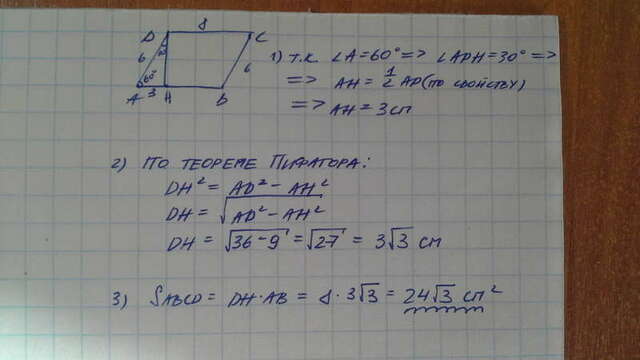 8
D C
6 30° 6
60°
A 3 H B
1) Т.К. ∠A=60° => ∠ADH=30° =>
=> AH = 1/2 AD (ПО СВОЙСТВУ)
=> AH = 3 СМ
2) ПО ТЕОРЕМЕ ПИФАГОРА:
DH² = AD² - AH²
DH = √AD² - AH²
DH = √36-9 = √27 = 3√3 СМ
3) SABCD = DH·AB = 8·3√3 = 24√3 СМ²